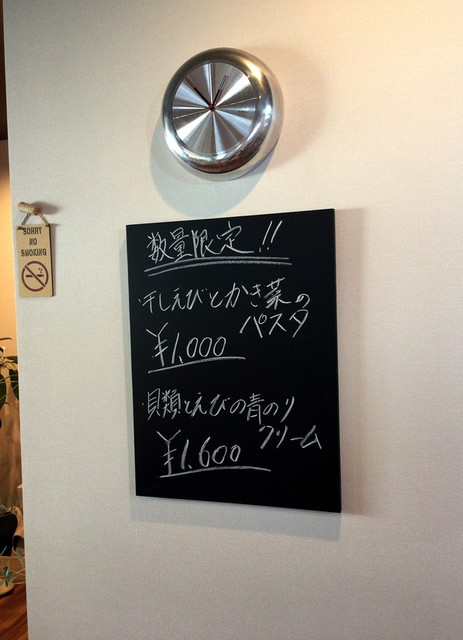 SORRY
NO
SMOKING
数量限定!!
干しえびとかき菜の
パスタ
¥1,000
貝類とえびの青のり
クリーム
¥1,600